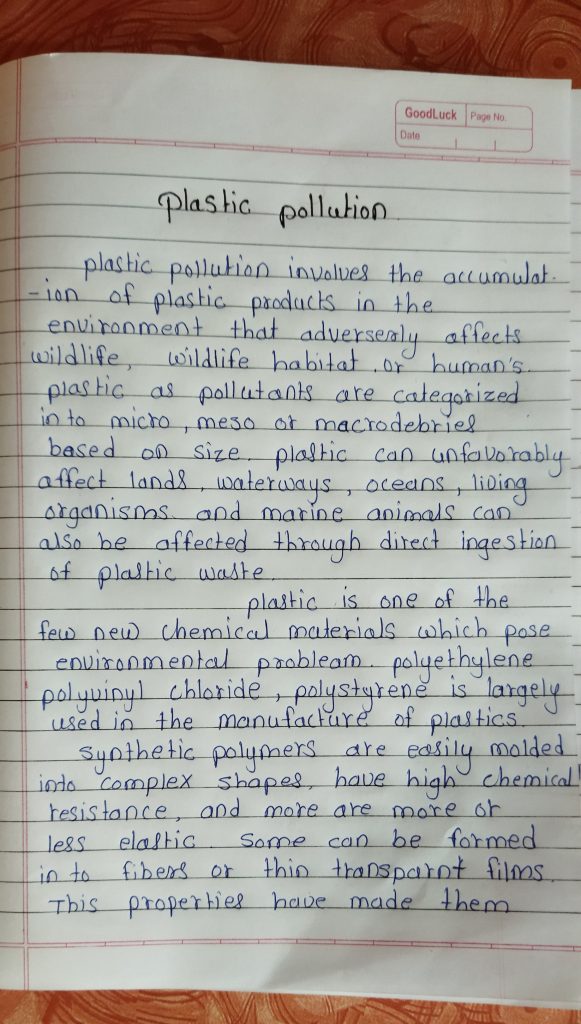 GoodLuck Page No.
Date
plastic pollution
plastic pollution involves the accumulat-
-ion of plastic products in the
environment that adversealy affects
wildlife, wildlife habitat, or human's.
plastic as pollutants are categorized
in to micro, meso or macrodebries
based on size. plastic can unfavorably
affect lands, waterways, oceans, living
organisms and marine animals can
also be affected through direct ingestion
of plastic waste.
plastic is one of the
few new chemical materials which pose
environmental probleam. polyethylene
polyvinyl chloride, polystyrene is largely
used in the manufacture of plastics.
synthetic polymers are easily molded
into complex shapes, have high chemical
resistance, and more are more or
less elastic. Some can be formed
in to fibers or thin transparnt films.
This properties have made them